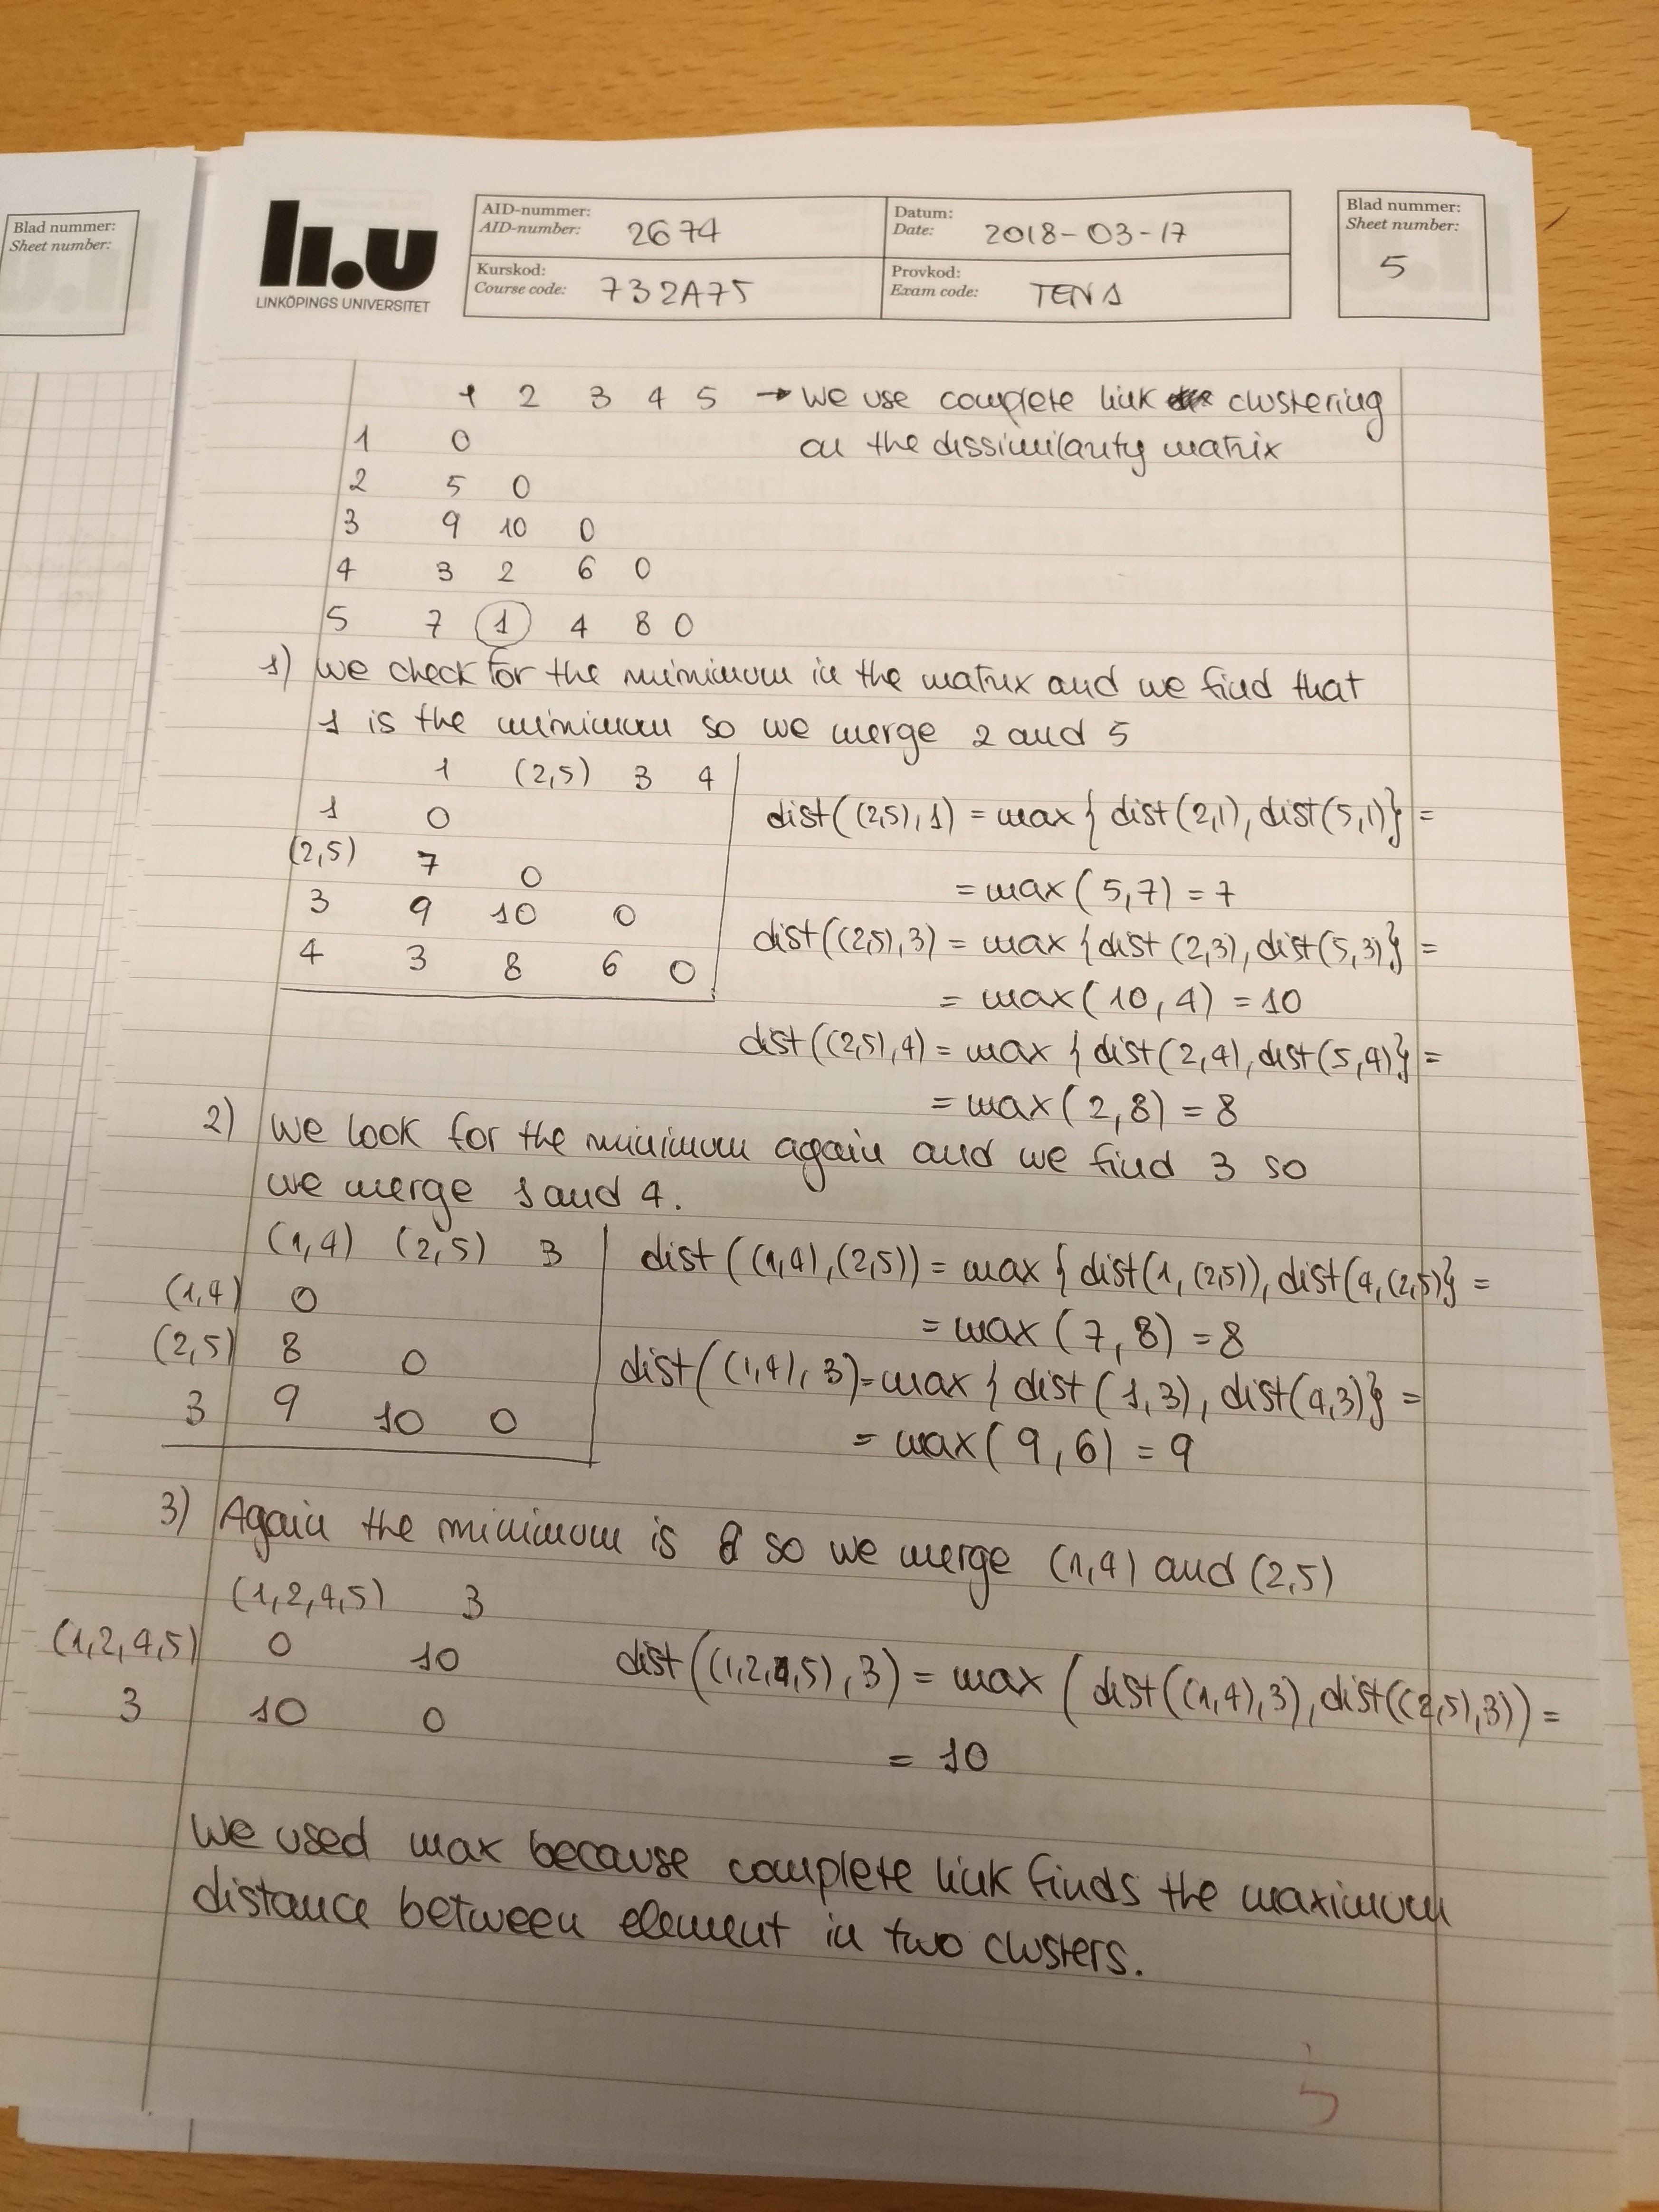 Blad nummer:
Sheet number:
li.u
LINKÖPINGS UNIVERSITET
AID-nummer:
AID-number: 2674
Datum:
Date: 2018-03-17
Kurskod:
Course code: 732A75
Provkod:
Exam code: TEN1
Blad nummer:
Sheet number:
5
1 2 3 4 5 → we use complete link clustering
1 0 on the dissimilarity matrix
2 5 0
3 9 10 0
4 3 2 6 0
5 7 1 4 8 0
1) we check for the minimum in the matrix and we find that
1 is the minimum so we merge 2 and 5
1 (2,5) 3 4
1 0
(2,5) 7 0
3 9 10 0
4 3 8 6 0
dist((2,5),1) = max{ dist(2,1), dist(5,1)} =
= max(5,7) = 7
dist((2,5),3) = max{dist(2,3), dist(5,3)} =
= max(10,4) = 10
dist((2,5),4) = max{ dist(2,4), dist(5,4)} =
= max(2,8) = 8
2) we look for the minimum again and we find 3 so
we merge 1 and 4.
(1,4) (2,5) 3
(1,4) 0
(2,5) 8 0
3 9 10 0
dist((1,4),(2,5)) = max{ dist(1,(2,5)), dist(4,(2,5)} =
= max(7,8) = 8
dist((1,4),3) = max{ dist(1,3), dist(4,3)} =
= max(9,6) = 9
3) Again the minimum is 8 so we merge (1,4) and (2,5)
(1,2,4,5) 3
(1,2,4,5) 0 10
3 10 0
dist((1,2,4,5),3) = max(dist((1,4),3), dist((2,5),3)) =
= 10
We used max because complete link finds the maximum
distance between element in two clusters.
5